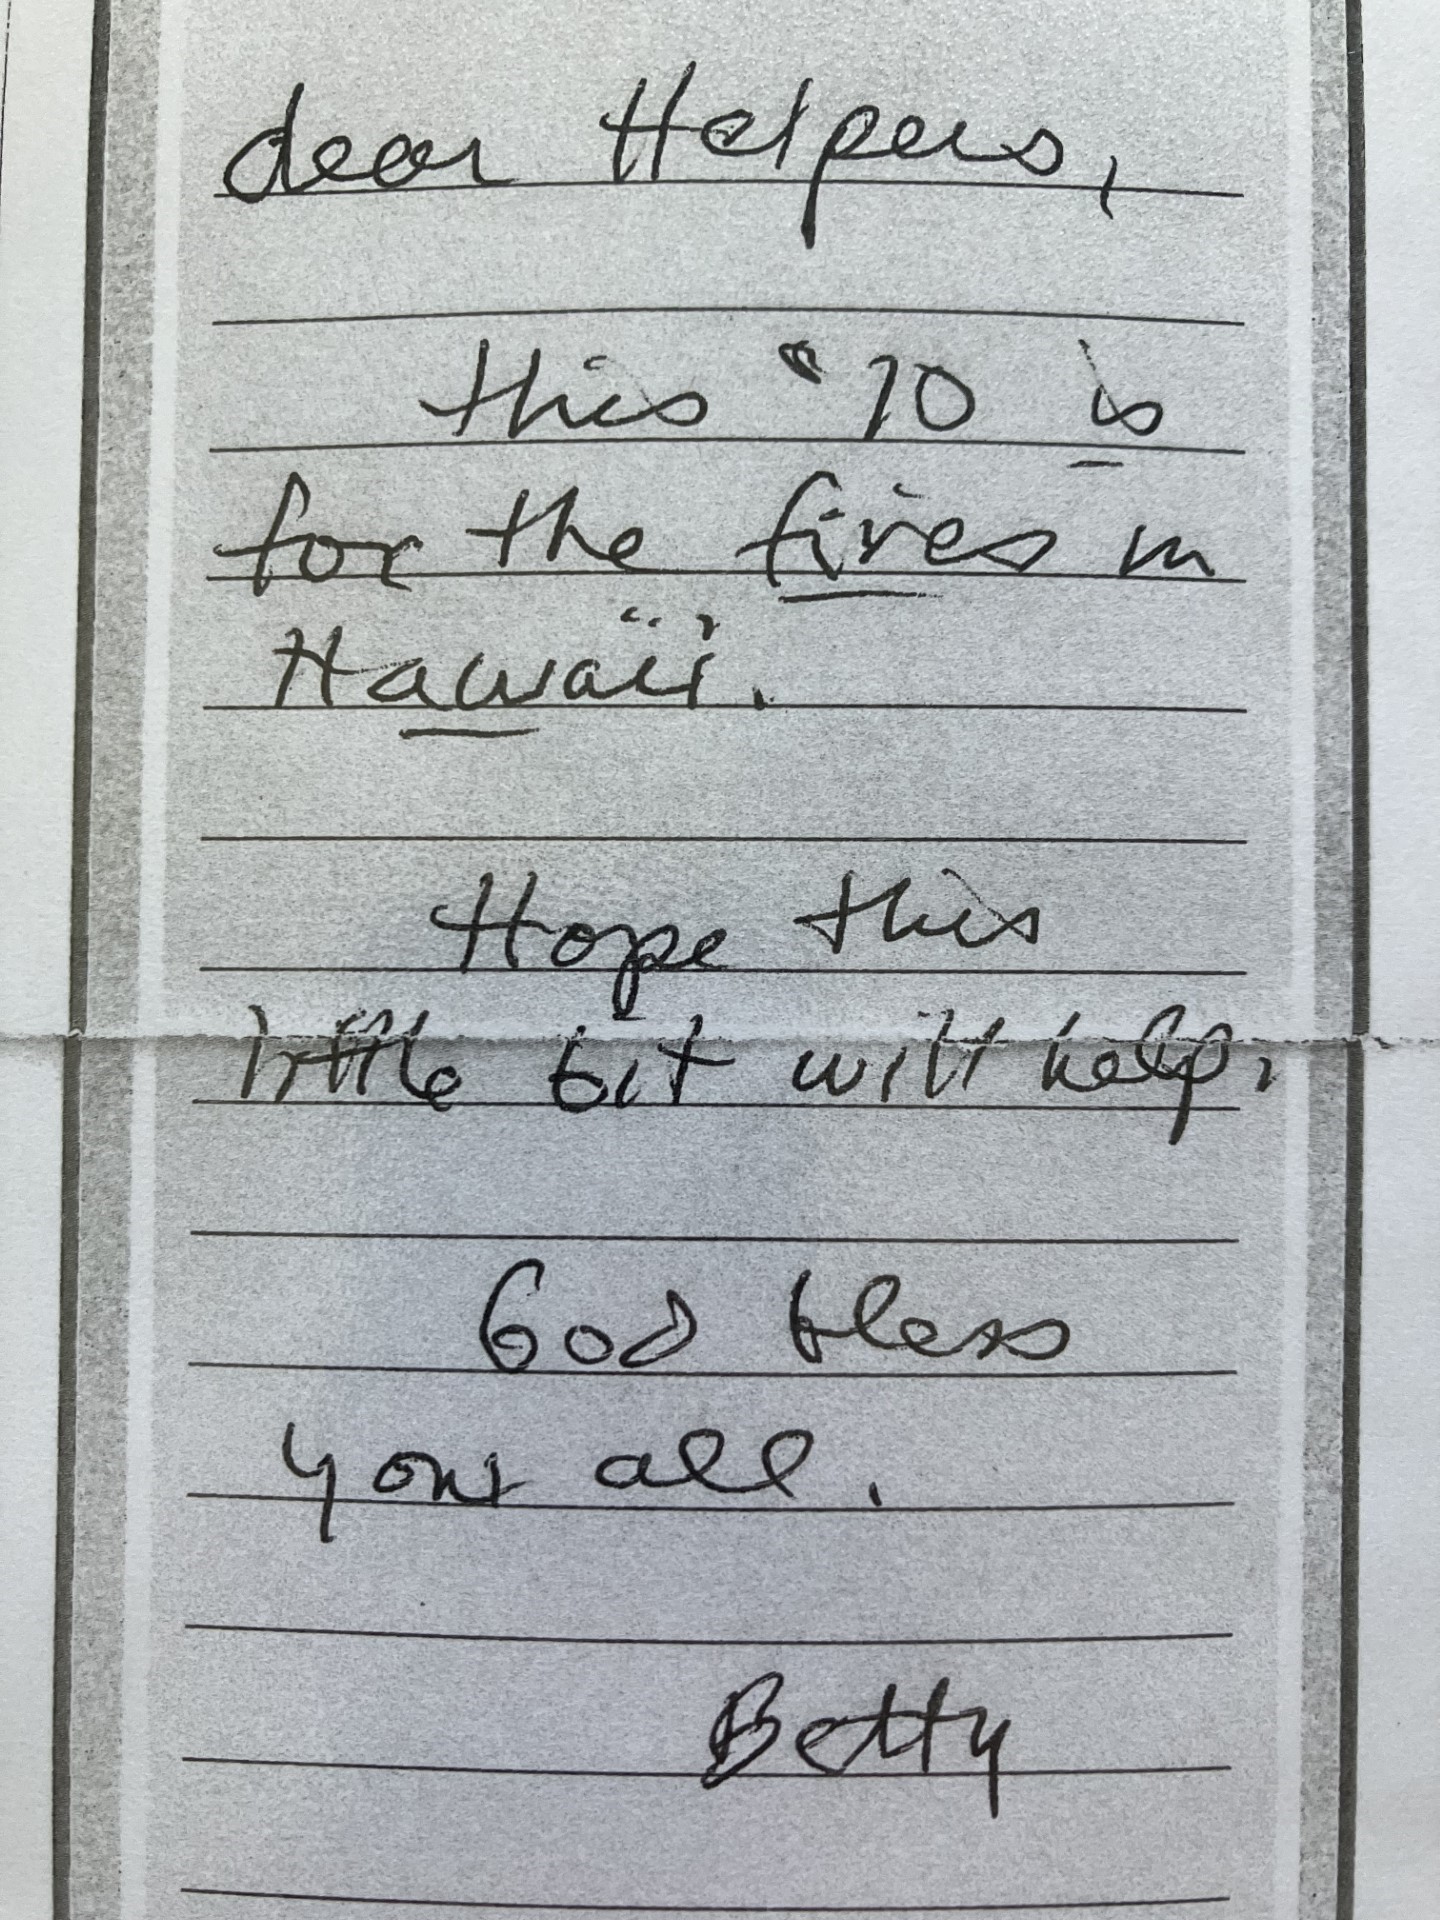 dear Helpers,
this $10 is
for the fires in
Hawaii.
Hope this
little bit will help.
God bless
you all.
Betty